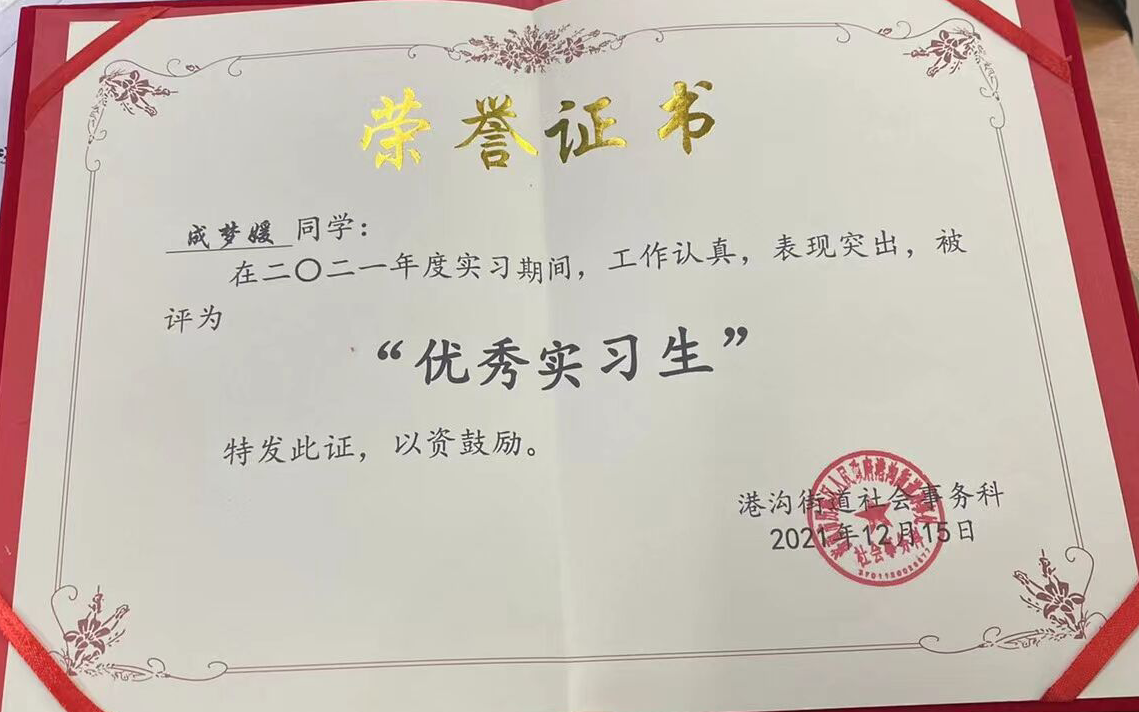 荣誉证书
成梦媛 同学：
在二〇二一年度实习期间，工作认真，表现突出，被
评为
“优秀实习生”
特发此证，以资鼓励。
港沟街道社会事务科
2021年12月15日
社会事务科